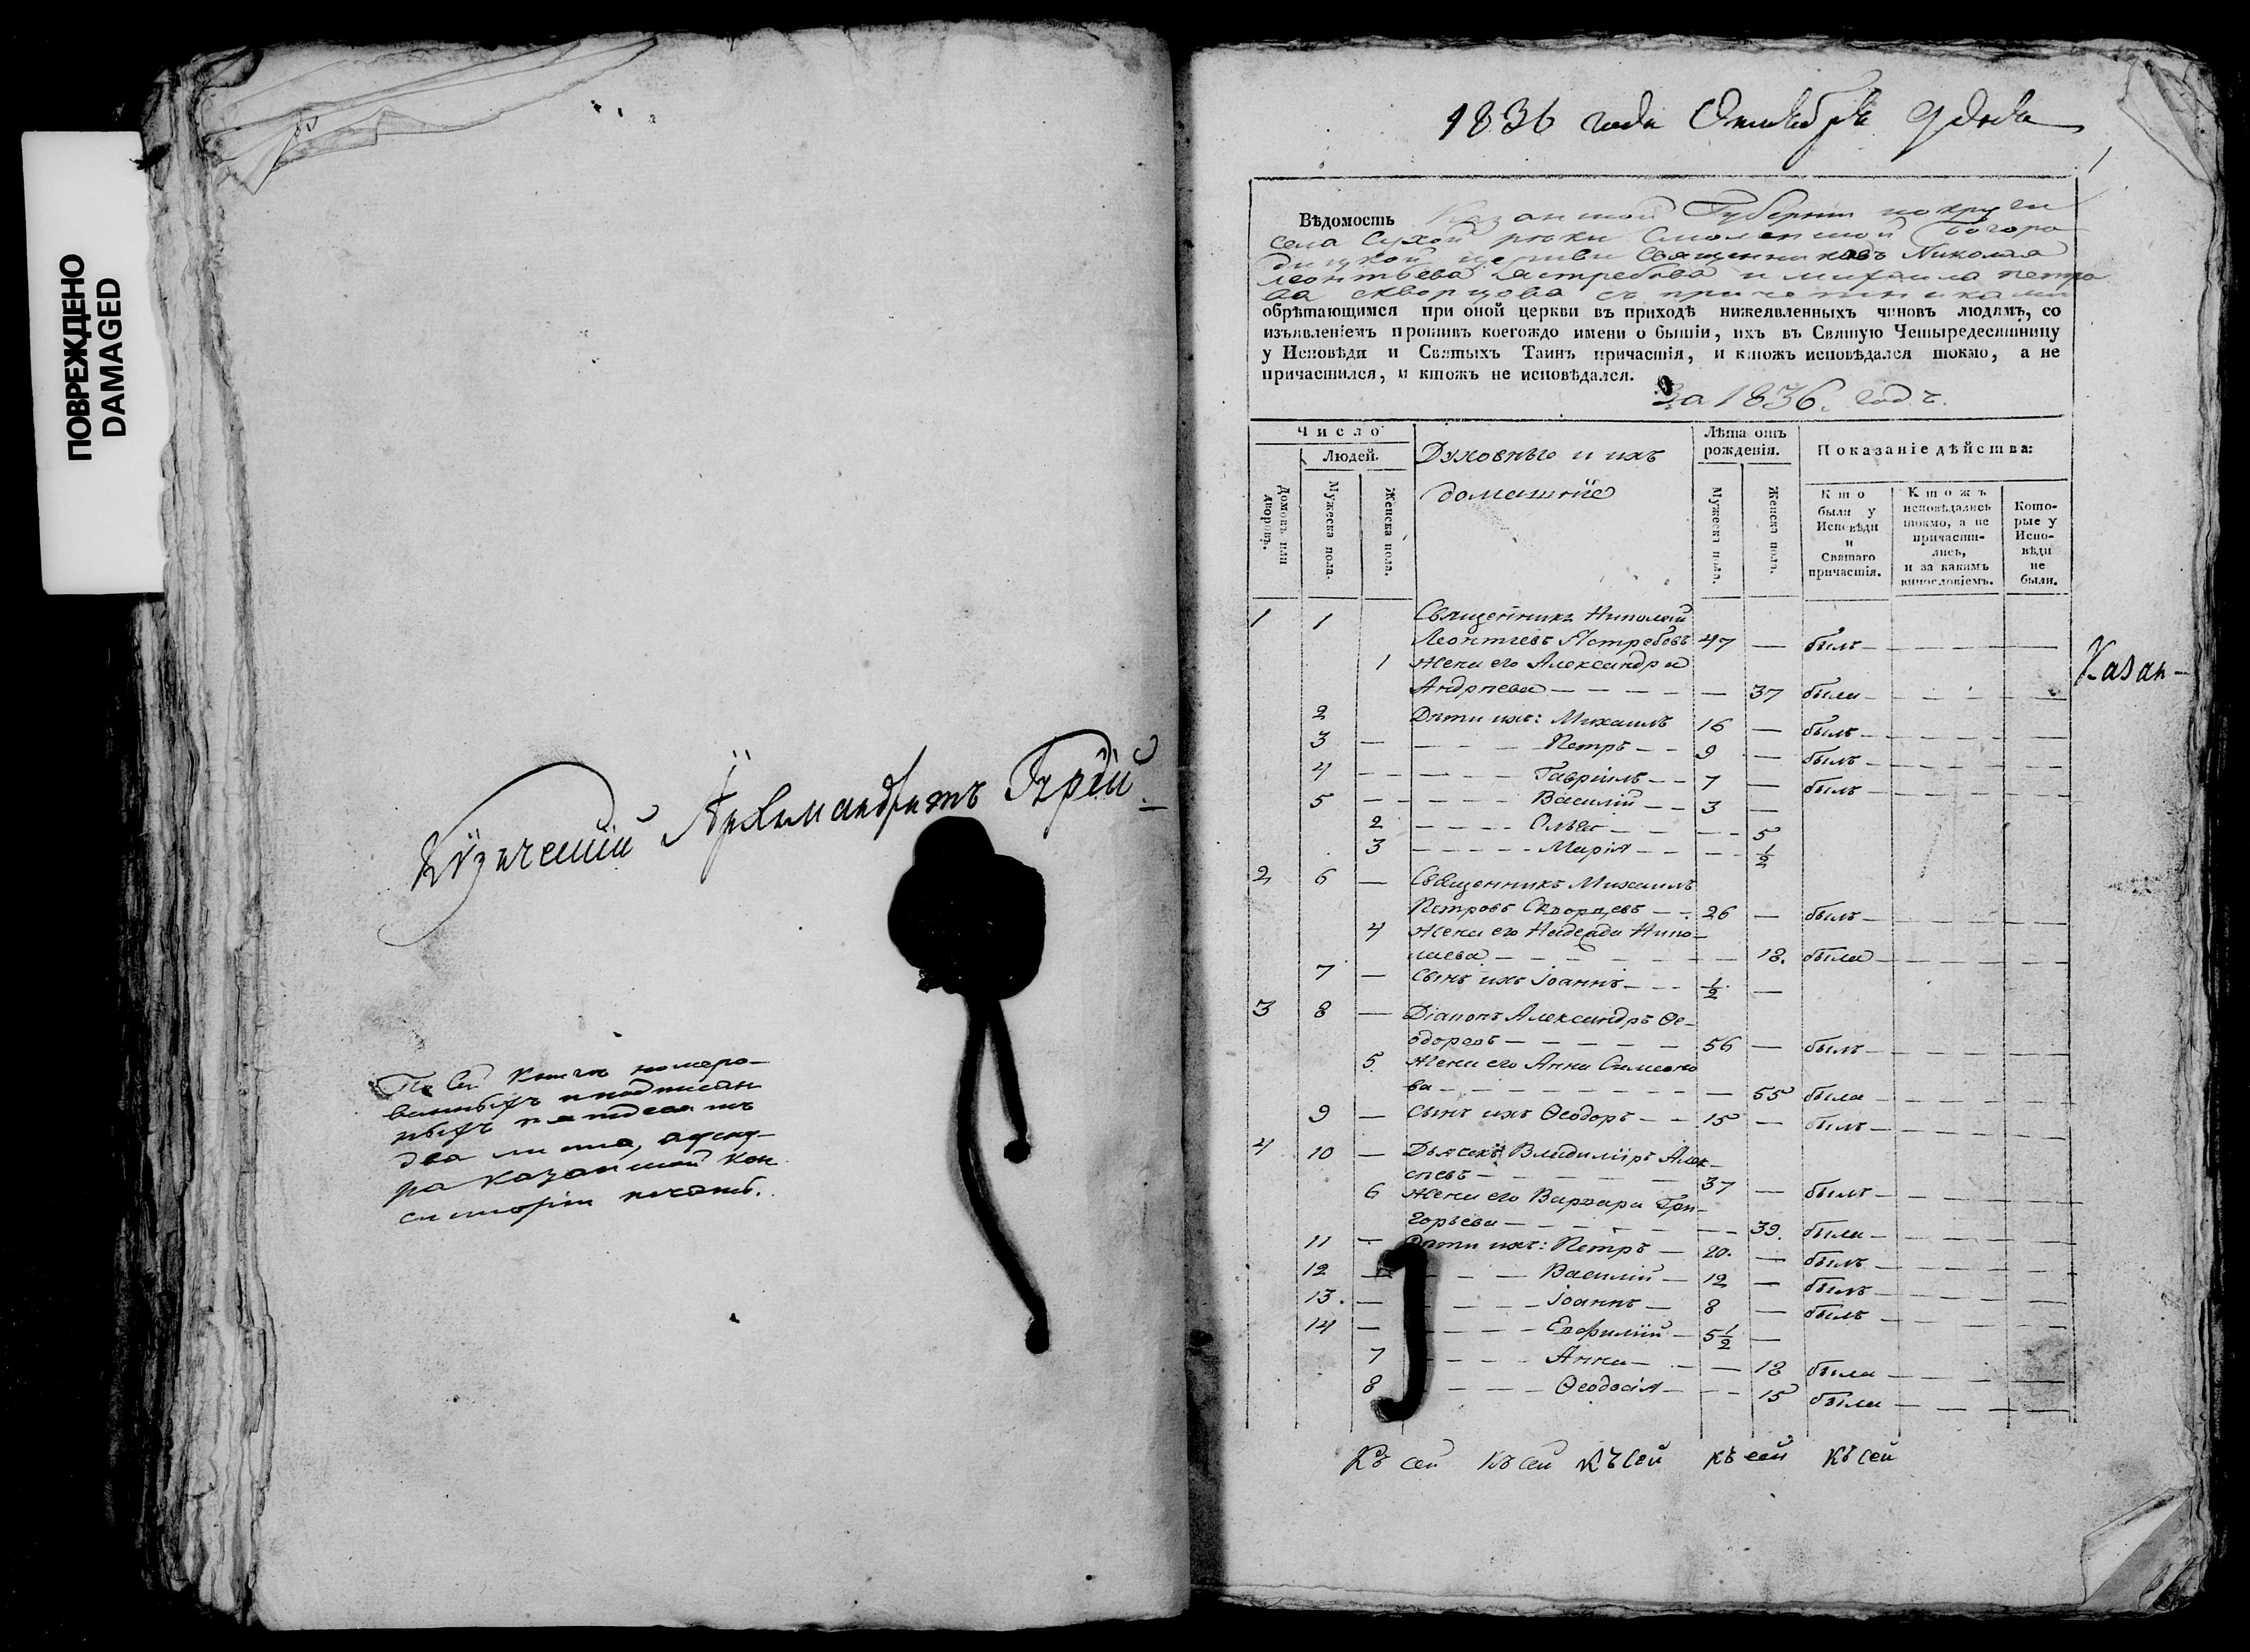 ПОВРЕЖДЕНО
DAMAGED
Архимандритъ Гурій
По сей книгѣ нумеро-
ванныхъ и подписан
ныхъ пятдесятъ
два листа, а
ра казанской кон
систоріи печать.
1836 года Октября 9 дня
Вѣдомость Казанской Губерніи
села Сухой рѣки Смоленской Богоро
дицкой церкви Священниковъ Николая
Леонтьева Ястребова и Михаила Петро
ва Скворцова съ причетниками
обрѣтающимся при оной церкви въ приходѣ нижеявленныхъ чиновъ людямъ, со
изъявленіемъ противъ коегождо имени о бытіи, ихъ въ Святую Четыредесятницу
у Исповѣди и Святыхъ Таинъ причастія, и ктожъ исповѣдался токмо, а не
причастился, и ктожъ не исповѣдался.
За 1836. годъ.
Число
Людей.
Домовъ или дворовъ.
Мужеска пола.
Женска пола.
Духовные и ихъ
домашніе
Лѣта отъ рожденія.
Мужеска пола.
Женска пола.
Показаніе дѣйства:
Кто были у Исповѣди и Святаго причастія.
Ктожъ исповѣдались токмо, а не причасти-лись, и за какимъ винословіемъ.
Кото-рые у Испо-вѣди не были.
1 1 Священникъ Николай
Леонтьевъ Ястребовъ 47 — былъ
1 Жена его Александра
Андреева — 37 была
Казан-
2 Дѣти ихъ: Михаилъ 16 — былъ
3 — Петръ 9 — былъ
4 — Гавріилъ 7 — былъ
5 — Василій 3 —
2 Ольга — 5
3 Марія — ½
2 6 — Священникъ Михаилъ
Петровъ Скворцевъ 26 — былъ
4 Жена его Надежда Нико-
лаева — 18. была
7 — Сынъ ихъ Іоаннъ ½ —
3 8 — Діаконъ Александръ Ѳе-
одоровъ 56 — былъ
5. Жена его Анна Симеоно
ва — 55 была
9 — Сынъ ихъ Ѳеодоръ 15 — былъ
4 10 — Дьячекъ Владиміръ Алек-
сѣевъ 37 — былъ
6 Жена его Варвара Гри-
горьева — 39. была
11 — Дѣти ихъ: Петръ 20. — былъ
12 — Василій 12 — былъ
13. — Іоаннъ 8 — былъ
14 — 5½ —
7 Анна — 18 была
8 Ѳеодосія — 15 была
Къ сей Къ сей Къ сей Къ сей Къ сей